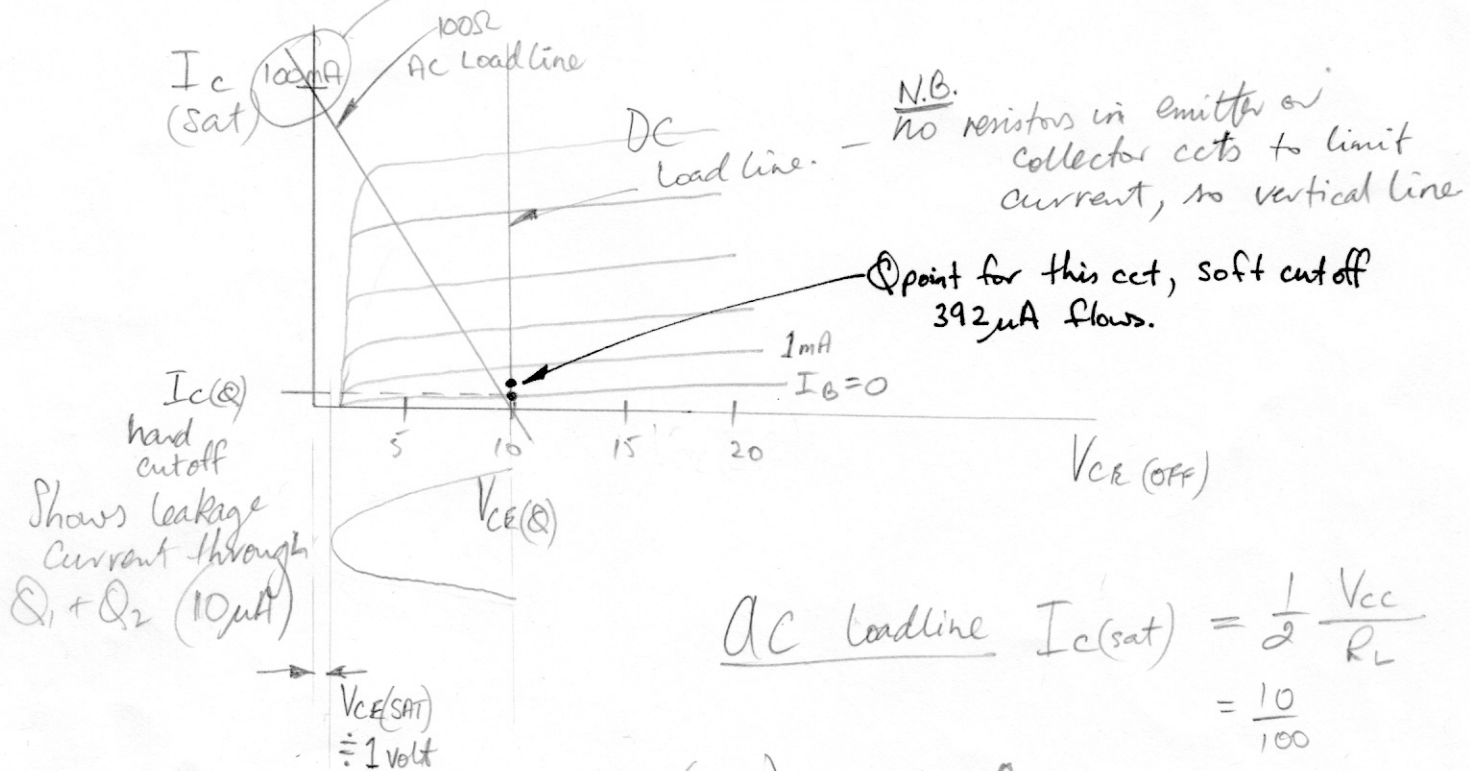 100Ω
AC Load line
Ic
(sat)
100mA
DC
Load line. —
N.B.
no resistors in emitter or
collector ccts to limit
current, so vertical line
Q point for this cct, soft cutoff
392µA flows.
1mA
IB=0
Ic(Q)
hard
cutoff
5 10 15 20
VCE (OFF)
Shows leakage
Current through
Q1 + Q2 (10µA)
VCE(Q)
VCE(SAT)
≑ 1 volt
ac loadline Ic(sat) = 1/2 Vcc/RL
= 10/100